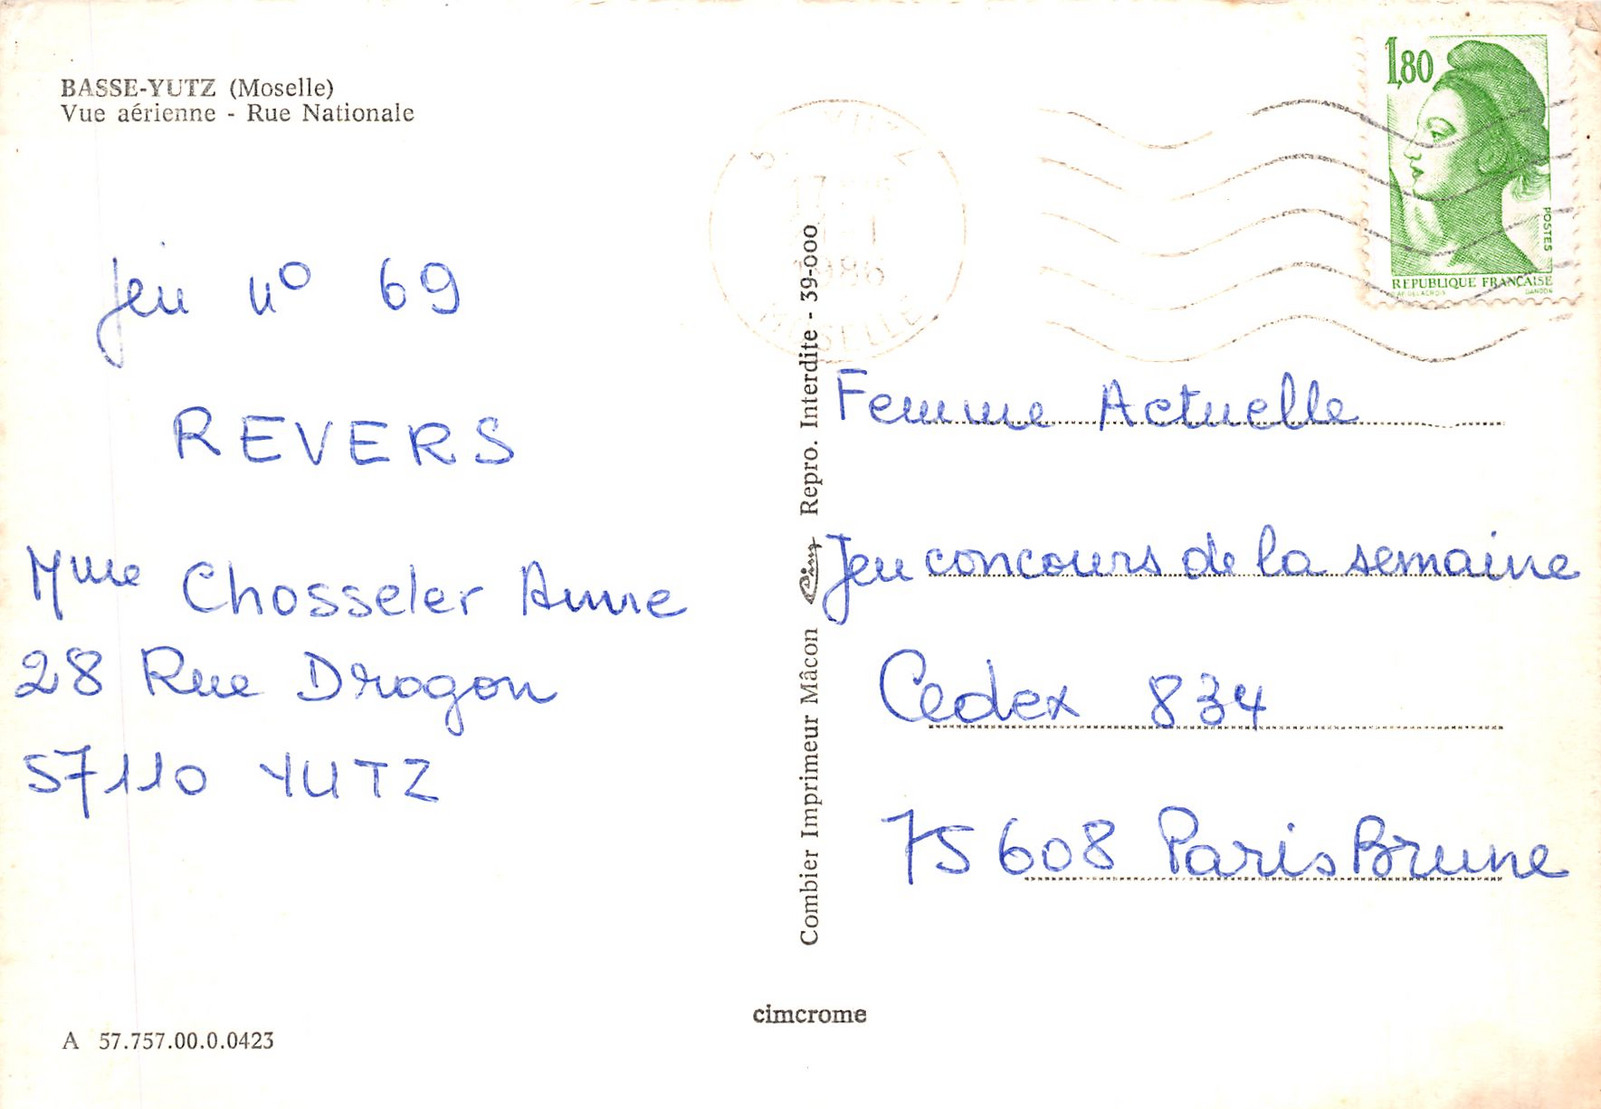 BASSE-YUTZ (Moselle)
Vue aérienne - Rue Nationale
Jeu n° 69
REVERS
Mme Chosseler Anne
28 Rue Dragon
57110 YUTZ
A 57.757.00.0.0423
Combier Imprimeur Mâcon Cim Repro. Interdite - 39-000
cimcrome
1986
MOSELLE
1,80
POSTES
REPUBLIQUE FRANÇAISE
Femme Actuelle
Jeu concours de la semaine
Cedex 834
75608 Paris Brune